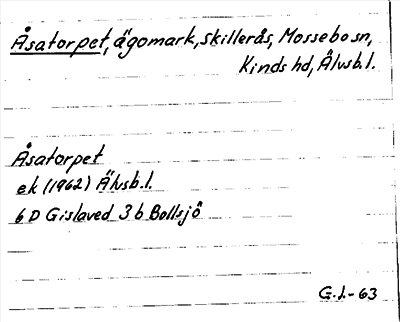 Åsatorpet, ägomark, Skillerås, Mossebo sn,
Kinds hd, Älvsb. l.
Åsatorpet
ek (1962) Älvsb. l.
6 D Gislaved 3 b Bollsjö
G.J.-63